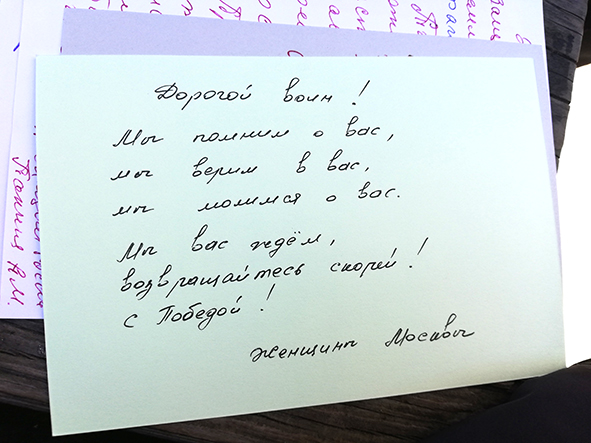 Дорогой воин!
Мы помним о вас,
мы верим в вас,
мы молимся о вас.
Мы вас ждём,
возвращайтесь скорей!
с Победой!
женщины Москвы